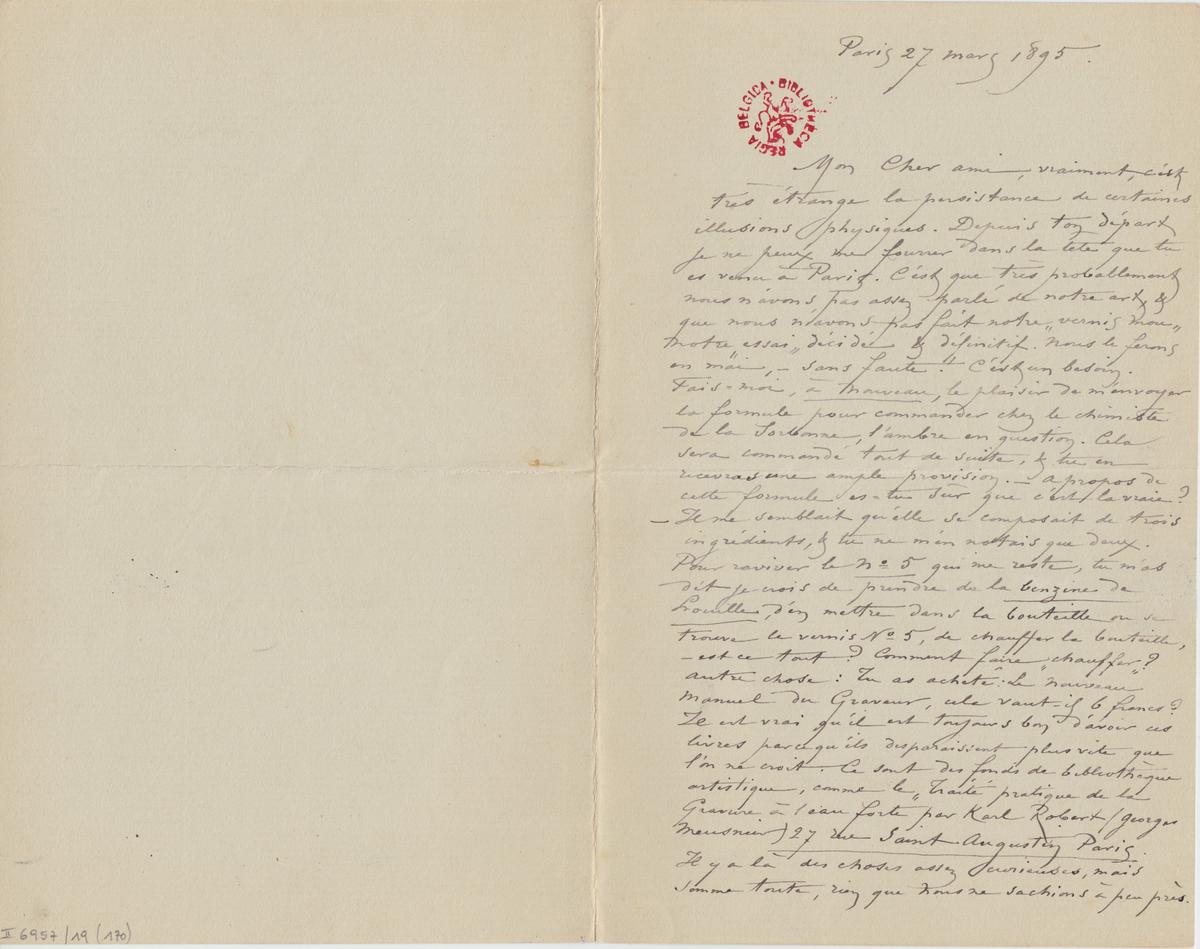 Paris 27 mars 1895.
REGIA BELGICA • BIBLIOTHECA
Mon Cher ami, vraiment, c'est
très étrange la persistance de certaines
illusions physiques. Depuis ton départ
je ne peux me fourrer dans la tête que tu
es venu à Paris. C'est que très probablement
nous n'avons pas assez parlé de notre art, &
que nous n'avons pas fait notre „vernis mou"
notre essai „décidé & définitif. Nous le ferons
en mai, – sans faute! C'est un besoin.
Fais-moi, à nouveau, le plaisir de m'envoyer
la formule pour commander chez le chimiste
de la Sorbonne, l'ambre en question. Cela
sera commandé tout de suite, & tu en
recevras une ample provision. – à propos de
cette formule es-tu sûr que c'est la vraie?
– Il me semblait qu'elle se composait de trois
ingrédients, & tu ne m'en notais que deux.
Pour raviver le No 5 qui me reste, tu m'as
dit je crois de prendre de la benzine de
houille, d'en mettre dans la bouteille ou se
trouve le vernis No 5, de chauffer la bouteille,
– est ce tout? Comment faire „chauffer"?
autre chose: Tu as acheté: Le nouveau
Manuel du Graveur, cela vaut-il 6 francs?
Il est vrai qu'il est toujours bon d'avoir ces
livres parce qu'ils disparaissent plus vite que
l'on ne croit. Ce sont des fonds de bibliothèque
artistique, comme le „Traité pratique de la
Gravure à l'eau forte par Karl Robert (georges
Meusnier) 27 rue Saint Augustin Paris.
Il y a là des choses assez curieuses, mais
somme toute, rien que nous ne sachions à peu près.
II 6957/19 (170)